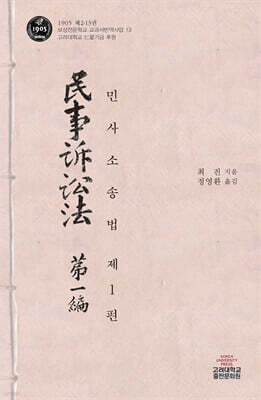 1905 제2-13권
보성전문학교 교과서번역사업 13
고려대학교 仁星기금 후원
1905
民事訴訟法 第一編
민사소송법 제1편
최진 지음
정영환 옮김
KOREA
UNIVERSITY
PRESS
고려대학교
출판문화원